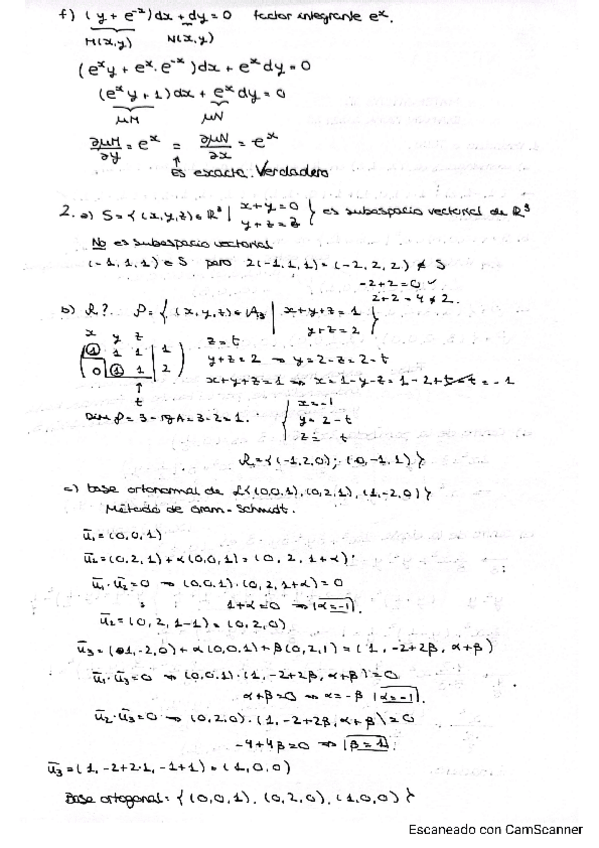 f) (y + e⁻ˣ)dx + dy = 0 factor integrante eˣ.
M(x,y) N(x,y)
(eˣy + eˣ·e⁻ˣ)dx + eˣdy = 0
(eˣy + 1)dx + eˣdy = 0
μM μN
∂μM/∂y = eˣ = ∂μN/∂x = eˣ
Es exacta. Verdadero
2. a) S = {(x,y,z) ∈ ℝ³ | x+y=0 y+z=z } es subespacio vectorial de ℝ³
No es subespacio vectorial
(-1,1,1) ∈ S pero 2(-1,1,1) = (-2,2,2) ∉ S
-2+2=0 ✓
2+2=4≠2.
b) R? P = { (x,y,z) ∈ A₃ | x+y+z=1 y+z=2 }
x y z
1 1 1 | 1 z = t
0 1 1 | 2 y+z=2 ⇒ y=2-z=2-t
↑ x+y+z=1 ⇒ x=1-y-z=1-2+t-t=-1
t
Dim P = 3 - rgA = 3-2 = 1. { x=-1
y= 2-t
z= t
R = {(-1,2,0); (0,-1,1)}
c) base ortonormal de L{(0,0,1), (0,2,1), (1,-2,0)}
Método de Gram-Schmidt.
ū₁ = (0,0,1)
ū₂ = (0,2,1) + α(0,0,1) = (0, 2, 1+α).
ū₁·ū₂ = 0 ⇒ (0,0,1)·(0,2,1+α) = 0
1+α=0 ⇒ |α=-1|.
ū₂ = (0, 2, 1-1) = (0,2,0).
ū₃ = (1,-2,0) + α(0,0,1) + β(0,2,1) = (1, -2+2β, α+β)
ū₁·ū₃=0 ⇒ (0,0,1)·(1, -2+2β, α+β) = 0
α+β=0 ⇒ α=-β |α=-1|.
ū₂·ū₃=0 ⇒ (0,2,0)·(1, -2+2β, α+β) = 0
-4+4β=0 ⇒ |β=1|.
ū₃ = (1, -2+2·1, -1+1) = (1,0,0)
Base ortogonal: {(0,0,1), (0,2,0), (1,0,0)}
Escaneado con CamScanner